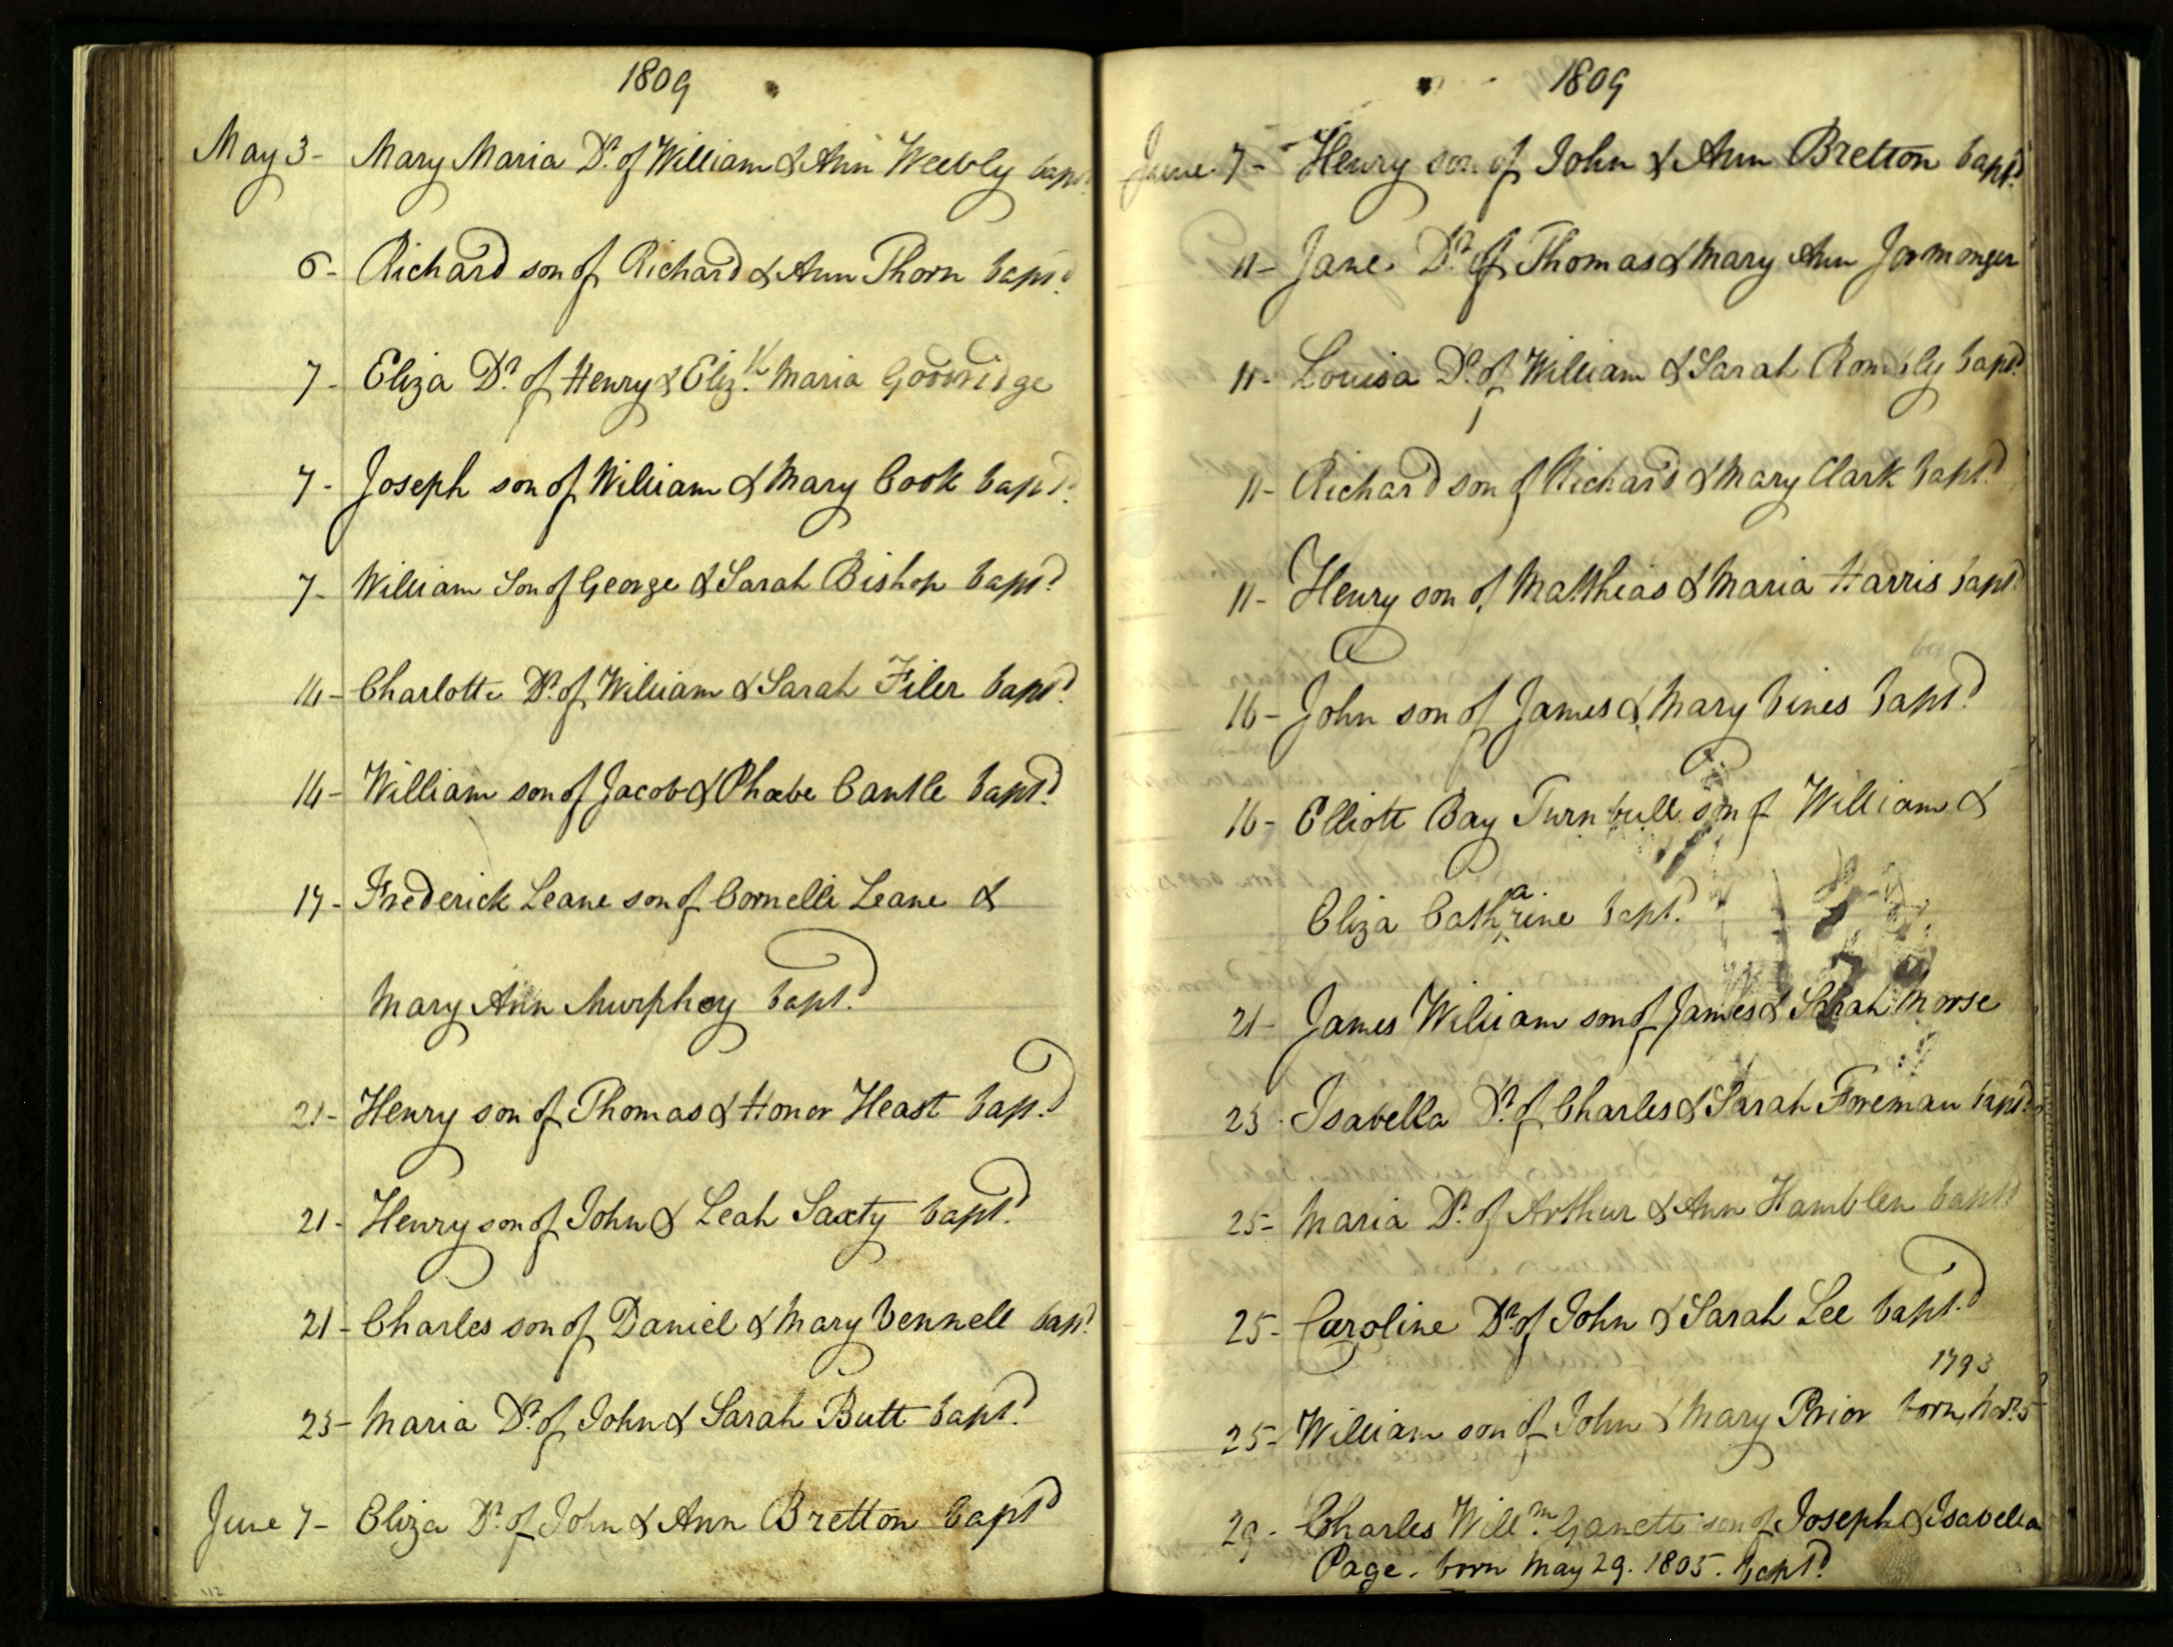 1809
May 3 - Mary Maria Dr. of William & Ann Weebly bapd.
6 - Richard son of Richard & Ann Thorn bapt.d
7 - Eliza Dr. of Henry & Eliz.th Maria Goodridge
7 - Joseph son of William & Mary Cook bapt.d
7 - William Son of George & Sarah Bishop bapt.d
14 - Charlotte Dr. of William & Sarah Filer bapt.d
14 - William son of Jacob & Phoebe Cantle bapt.d
17 - Frederick Leane son of Cornelli Leane &
Mary Ann Murphey bapt.d
21 - Henry son of Thomas & Honor Heast bap.d
21 - Henry son of John & Leah Saxty bapt.d
21 - Charles son of Daniel & Mary Vennell bap.d
23 - Maria Dr. of John & Sarah Butt bapt.d
June 7 - Eliza Dr. of John & Ann Bretton bapt.d
112
1809
June 7 - Henry son of John & Ann Bretton bapt.d
11 - Jane Dr. of Thomas & Mary Ann Jormonger
11 - Louisa Dr. of William & Sarah bapt.d
11 - Richard son of Richard & Mary Clark bapt.d
11 - Henry son of Matthias & Maria Harris bapt.d
16 - John son of James & Mary Vines bapt.d
16 - Elliott Bay Turnbull son of William &
Eliza Catharine bapt.d
21 - James William son of James & Sarah Morse
23 - Isabella Dr. of Charles & Sarah Foreman bapt.d
25 - Maria Dr. of Arthur & Ann Hamblen bapt.d
25 - Caroline Dr. of John & Sarah Lee bapt.d
1793
25 - William son of John & Mary Prior born Nov.r 5
29 - Charles Will.m Ganett son of Joseph & Isabella
Page. born May 29. 1805. bapt.d